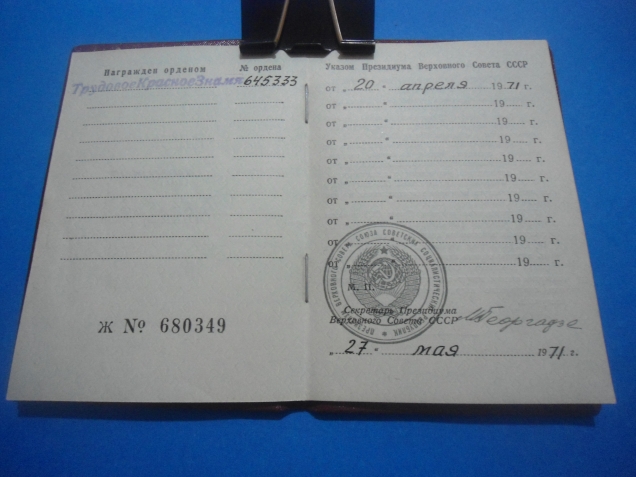 Награжден орденом
№ ордена
Трудовое Красное Знамя
645333
Ж № 680349
Указом Президиума Верховного Совета СССР
от „ 20 " апреля 1971 г.
от „ " 19 г.
от „ " 19 г.
от „ " 19 г.
от „ " 19 г.
от „ " 19 г.
от „ " 19 г.
от „ " 19 г.
от „ " 19 г.
от „ " 19 г.
М. П.
Секретарь Президиума
Верховного Совета СССР
МГеоргадзе
„ 27 " мая 1971 г.